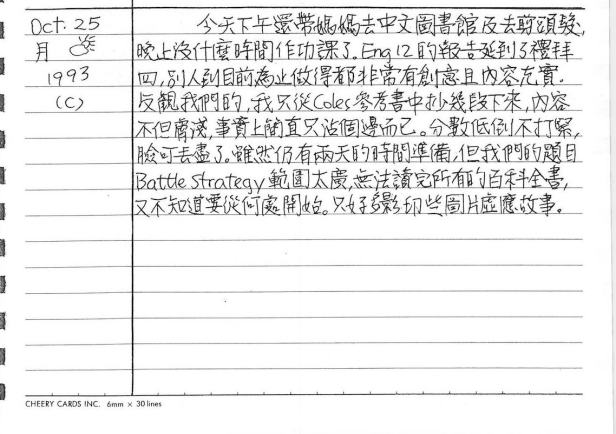 Oct. 25
月
1993
(C)
今天下午還帶媽媽去中文圖書館及去剪頭髮,
晚上沒什麼時間作功課了. Eng 12 的報告延到了禮拜
四, 別人到目前為止做得都非常有創意且內容充實.
反觀我們的, 我只從Coles參考書中抄幾段下來, 內容
不但膚淺, 事實上簡直只沾個邊而已。分數低倒不打緊,
臉可丟盡了. 雖然仍有兩天的時間準備, 但我們的題目
Battle Strategy 範圍太廣, 無法讀完所有的百科全書,
又不知道要從何處開始。只好影印些圖片虛應故事.
CHEERY CARDS INC. 6mm × 30 lines